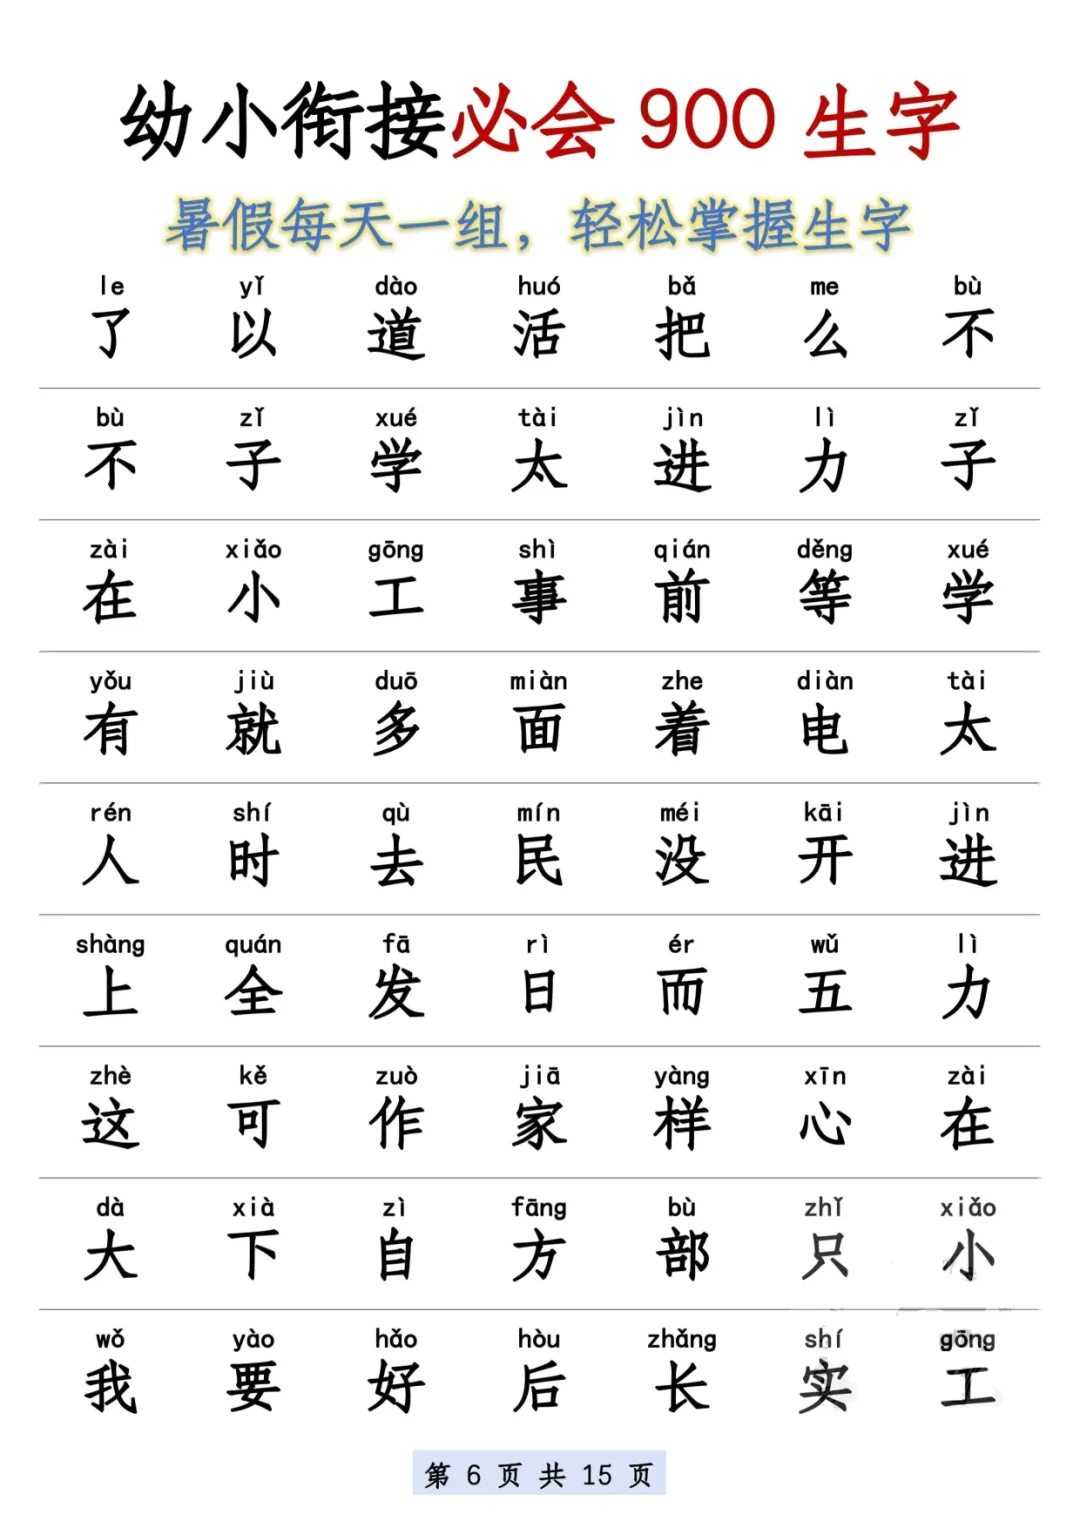 幼小衔接必会900生字
暑假每天一组，轻松掌握生字
le yǐ dào huó bǎ me bù
了 以 道 活 把 么 不
bù zǐ xué tài jìn lì zǐ
不 子 学 太 进 力 子
zài xiǎo gōng shì qián děng xué
在 小 工 事 前 等 学
yǒu jiù duō miàn zhe diàn tài
有 就 多 面 着 电 太
rén shí qù mín méi kāi jìn
人 时 去 民 没 开 进
shàng quán fā rì ér wǔ lì
上 全 发 日 而 五 力
zhè kě zuò jiā yàng xīn zài
这 可 作 家 样 心 在
dà xià zì fāng bù zhǐ xiǎo
大 下 自 方 部 只 小
wǒ yào hǎo hòu zhǎng shí gōng
我 要 好 后 长 实 工
第 6 页 共 15 页